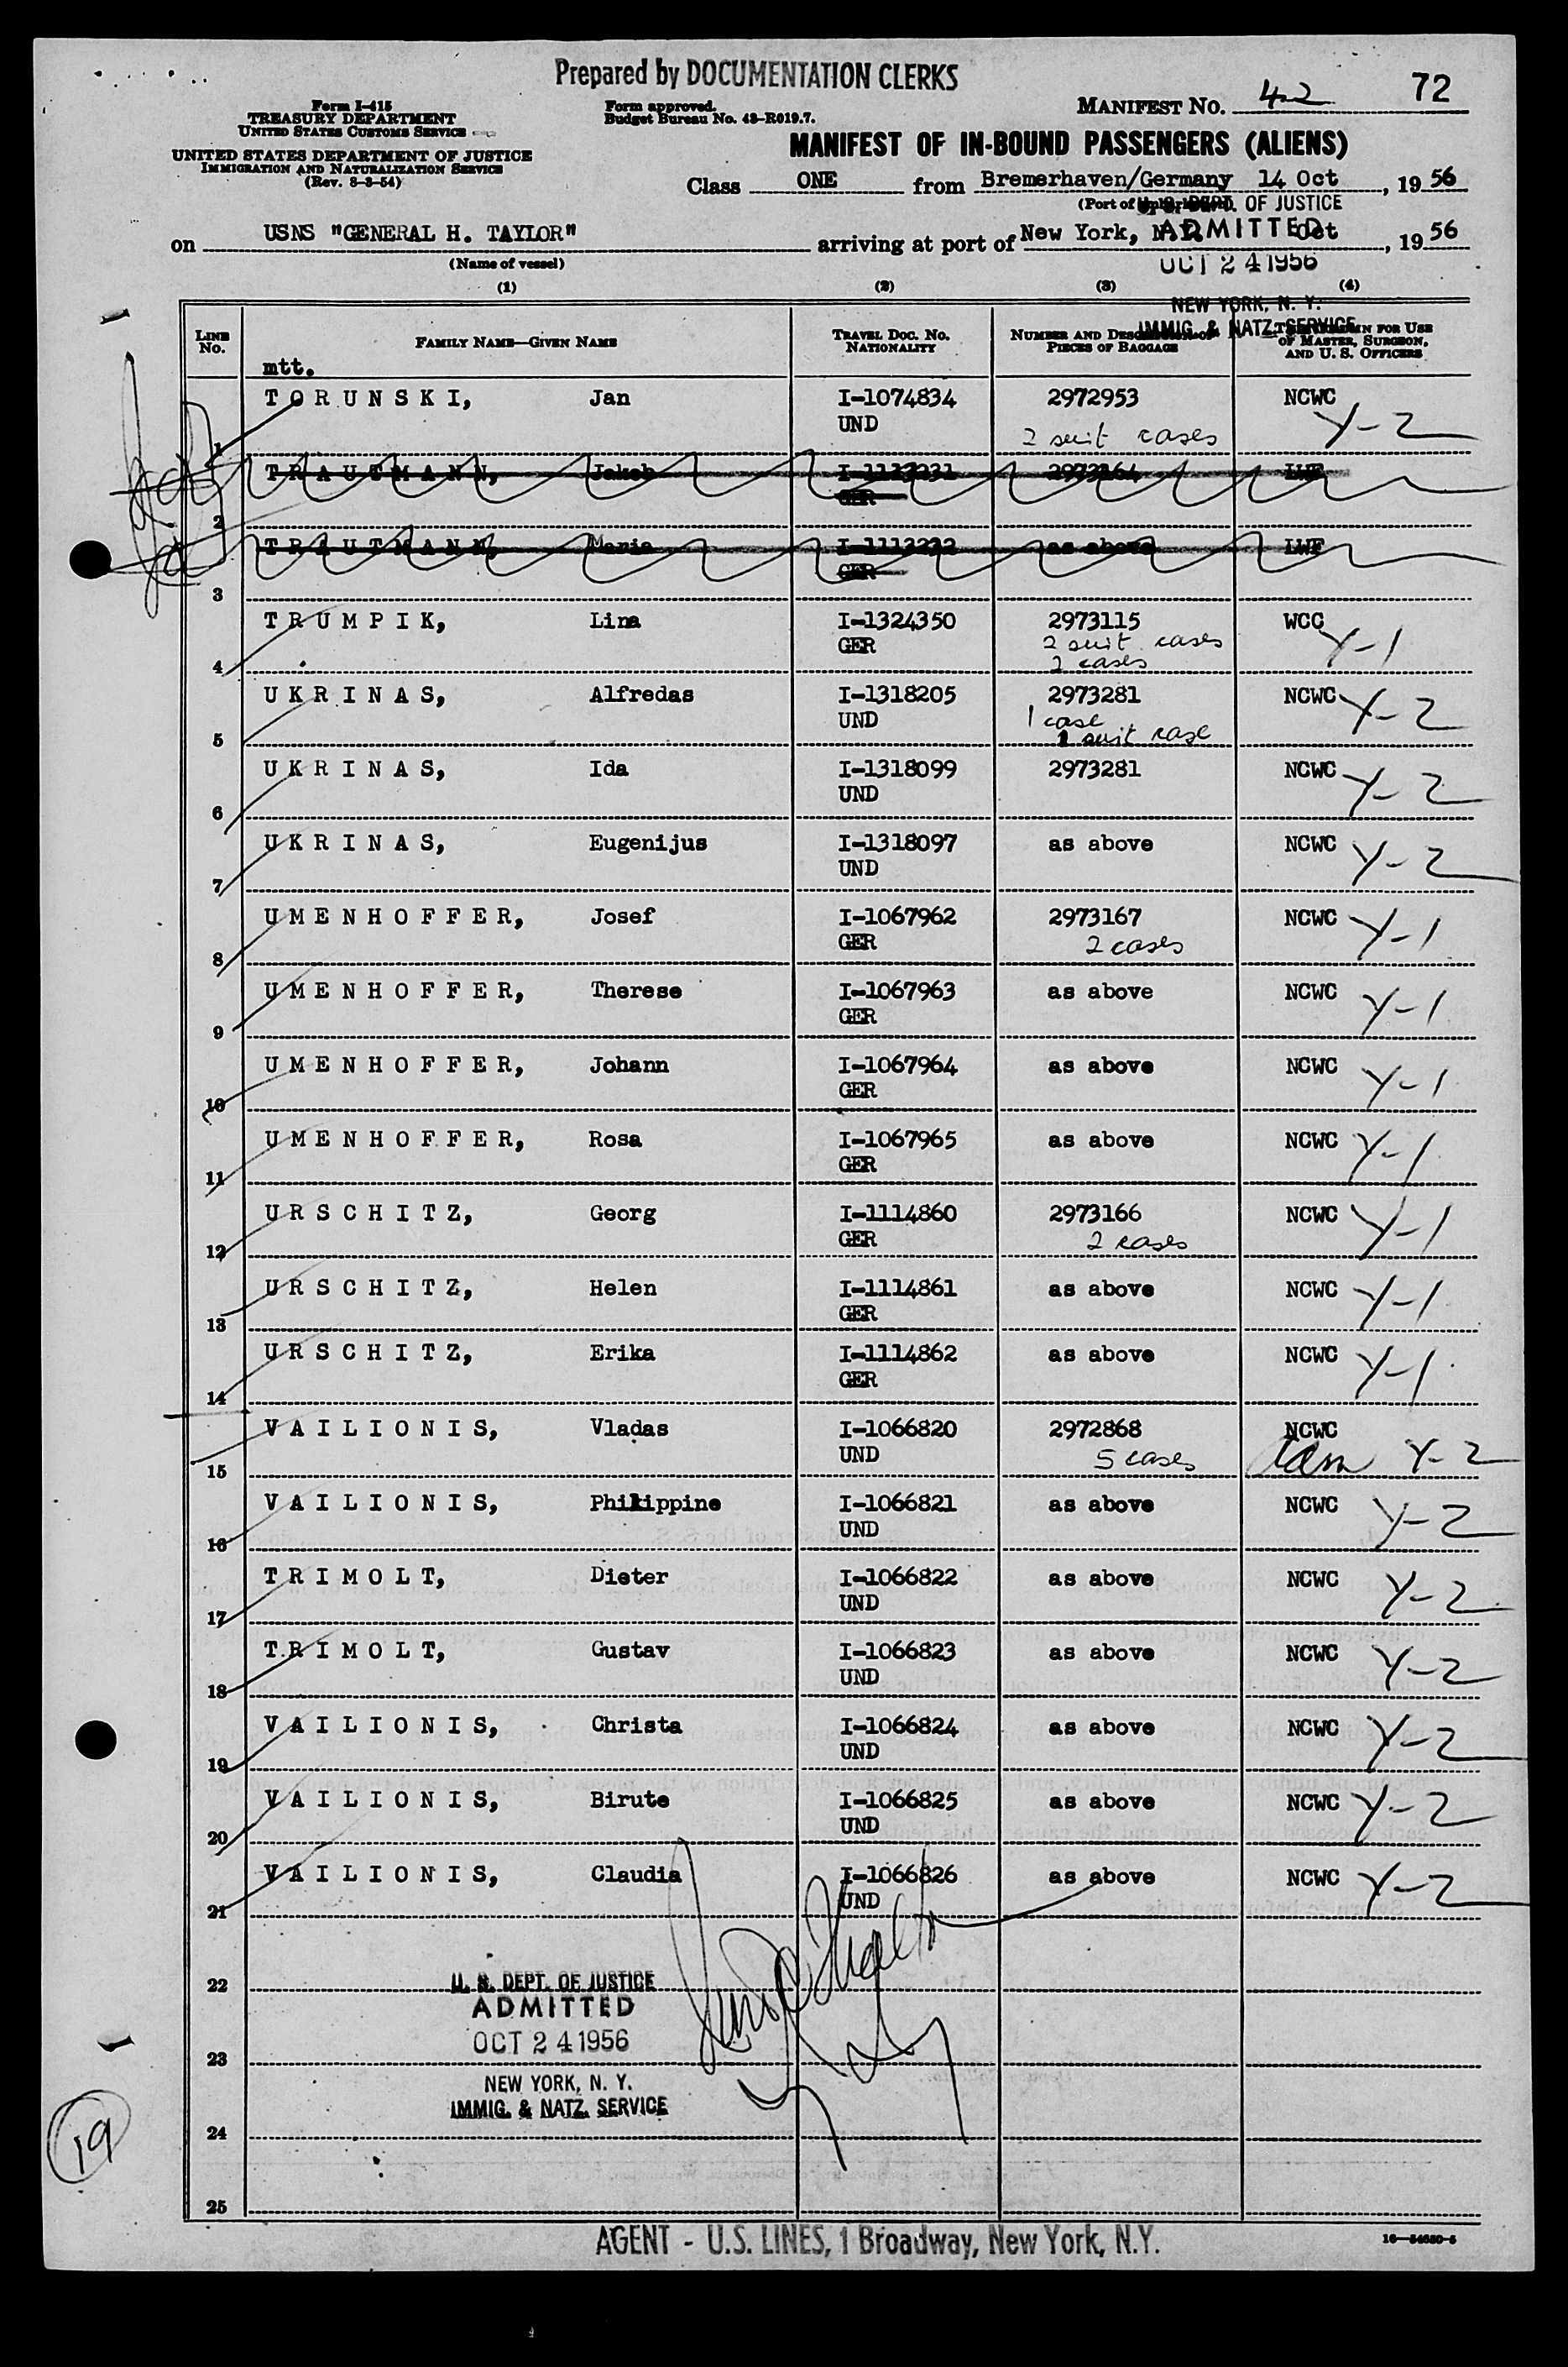 Prepared by DOCUMENTATION CLERKS
72
Form I-415
TREASURY DEPARTMENT
UNITED STATES CUSTOMS SERVICE
Form approved.
Budget Bureau No. 43-R019.7.
MANIFEST NO. 42
UNITED STATES DEPARTMENT OF JUSTICE
IMMIGRATION AND NATURALIZATION SERVICE
(Rev. 8-3-54)
MANIFEST OF IN-BOUND PASSENGERS (ALIENS)
Class ONE from Bremerhaven/Germany 14 Oct, 19 56
(Port of
DEPT. OF JUSTICE
on USNS "GENERAL H. TAYLOR" arriving at port of New York, Oct, 19 56
(Name of vessel)
ADMITTED
OCT 24 1956
NEW YORK, N. Y.
IMMIG. & NATZ. SERVICE
(1) (2) (3) (4)
LINE No. FAMILY NAME—GIVEN NAME TRAVEL DOC. NO. NATIONALITY NUMBER AND PIECES OF BAGGAGE FOR USE OF MASTER, SURGEON, AND U. S. OFFICERS
mtt.
1 TORUNSKI, Jan I-1074834 2972953 NCWC
UND 2 suit cases Y-2
2 TRAUTMANN, Jakob 2973164 LWF
GER
3 TRAUTMANN, Maria I-1113232 as above LWF
GER
4 TRUMPIK, Lina I-1324350 2973115 WCC
GER 2 suit cases Y-1
2 cases
5 UKRINAS, Alfredas I-1318205 2973281 NCWC Y-2
UND 1 case
1 suit case
6 UKRINAS, Ida I-1318099 2973281 NCWC Y-2
UND
7 UKRINAS, Eugenijus I-1318097 as above NCWC Y-2
UND
8 UMENHOFFER, Josef I-1067962 2973167 NCWC Y-1
GER 2 cases
9 UMENHOFFER, Therese I-1067963 as above NCWC Y-1
GER
10 UMENHOFFER, Johann I-1067964 as above NCWC Y-1
GER
11 UMENHOFFER, Rosa I-1067965 as above NCWC Y-1
GER
12 URSCHITZ, Georg I-1114860 2973166 NCWC Y-1
GER 2 cases
13 URSCHITZ, Helen I-1114861 as above NCWC Y-1
GER
14 URSCHITZ, Erika I-1114862 as above NCWC Y-1
GER
15 VAILIONIS, Vladas I-1066820 2972868 NCWC
UND 5 cases Y-2
16 VAILIONIS, Philippine I-1066821 as above NCWC Y-2
UND
17 TRIMOLT, Dieter I-1066822 as above NCWC Y-2
UND
18 TRIMOLT, Gustav I-1066823 as above NCWC Y-2
UND
19 VAILIONIS, Christa I-1066824 as above NCWC Y-2
UND
20 VAILIONIS, Birute I-1066825 as above NCWC Y-2
UND
21 VAILIONIS, Claudia I-1066826 as above NCWC Y-2
UND
22
U. S. DEPT. OF JUSTICE
ADMITTED
OCT 24 1956
23
NEW YORK, N. Y.
IMMIG. & NATZ. SERVICE
24
19
25
AGENT - U.S. LINES, 1 Broadway, New York, N.Y.